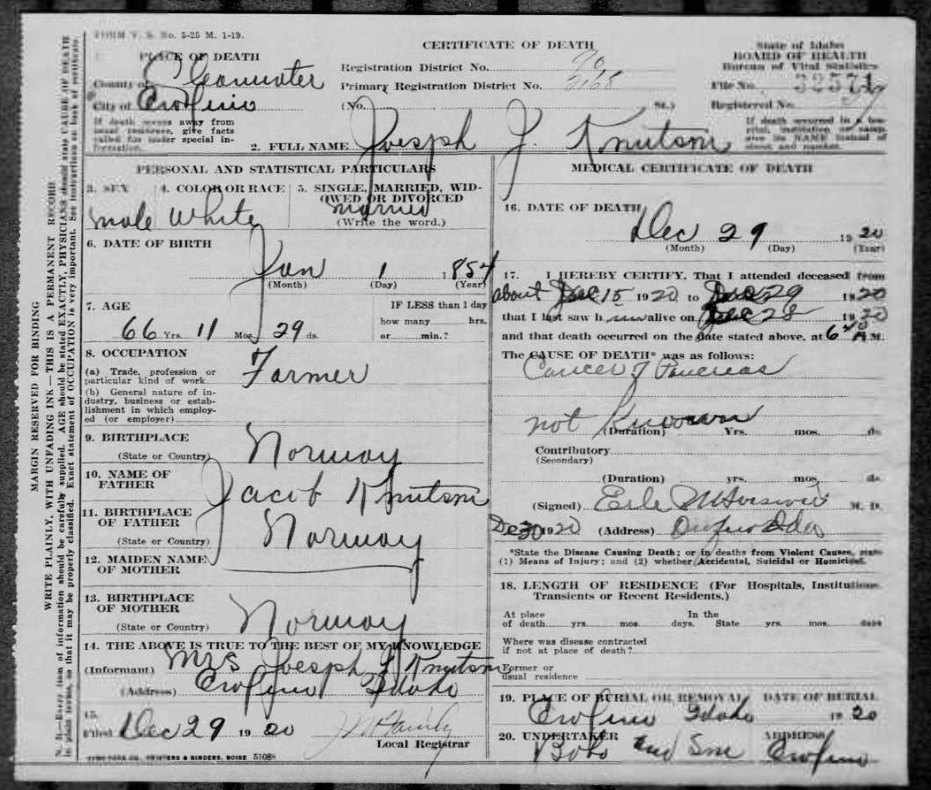 FORM V. S. No. 5-25 M. 1-19.
CERTIFICATE OF DEATH
State of Idaho
BOARD OF HEALTH
Bureau of Vital Statistics
1. PLACE OF DEATH
County of Clearwater
City of Orofino
If death occurs away from usual residence, give facts called for under special information.
Registration District No. 90
Primary Registration District No. 2168
(No. St.)
File No. 32571
Registered No.
If death occurred in a hospital, institution or camp, give its NAME instead of street and number.
2. FULL NAME Joesph J. Knutson
PERSONAL AND STATISTICAL PARTICULARS
3. SEX male
4. COLOR OR RACE White
5. SINGLE, MARRIED, WIDOWED OR DIVORCED married
(Write the word.)
6. DATE OF BIRTH
Jan 1 1854
(Month) (Day) (Year)
7. AGE
66 Yrs. 11 Mos. 29 ds.
IF LESS than 1 day
how many hrs.
or min.?
8. OCCUPATION
(a) Trade, profession or particular kind of work Farmer
(b) General nature of industry, business or establishment in which employed (or employer)
9. BIRTHPLACE
(State or Country) Norway
10. NAME OF FATHER Jacob Knutson
11. BIRTHPLACE OF FATHER
(State or Country) Norway
12. MAIDEN NAME OF MOTHER
13. BIRTHPLACE OF MOTHER
(State or Country) Norway
14. THE ABOVE IS TRUE TO THE BEST OF MY KNOWLEDGE
(Informant) Mrs Joesph J Knutson
(Address) Orofino Idaho
15.
Filed Dec 29 1920
Local Registrar
MEDICAL CERTIFICATE OF DEATH
16. DATE OF DEATH
Dec 29 1920
(Month) (Day) (Year)
17. I HEREBY CERTIFY, That I attended deceased from
about Dec 15 1920 to Dec 29 1920
that I last saw him alive on Dec 28 1920
and that death occurred on the date stated above, at 6 40 A M.
The CAUSE OF DEATH* was as follows:
Cancer of Pancreas
not Known
(Duration) Yrs. mos. ds.
Contributory
(Secondary)
(Duration) yrs. mos. ds.
(Signed) M. D.
Dec 30 1920 (Address) Orofino Ida
*State the Disease Causing Death; or in deaths from Violent Causes, state
(1) Means of Injury; and (2) whether Accidental, Suicidal or Homicidal.
18. LENGTH OF RESIDENCE (For Hospitals, Institutions, Transients or Recent Residents.)
At place of death yrs. mos. days. In the State yrs. mos. days
Where was disease contracted if not at place of death?
Former or usual residence
19. PLACE OF BURIAL OR REMOVAL DATE OF BURIAL
Orofino Idaho 1920
20. UNDERTAKER ADDRESS
and Son Orofino
MARGIN RESERVED FOR BINDING
WRITE PLAINLY, WITH UNFADING INK—THIS IS A PERMANENT RECORD
N. B.—Every item of information should be carefully supplied. AGE should be stated EXACTLY, PHYSICIANS should state CAUSE OF DEATH
in plain terms, so that it may be properly classified. Exact statement of OCCUPATION is very important. See instructions on back of certificate.